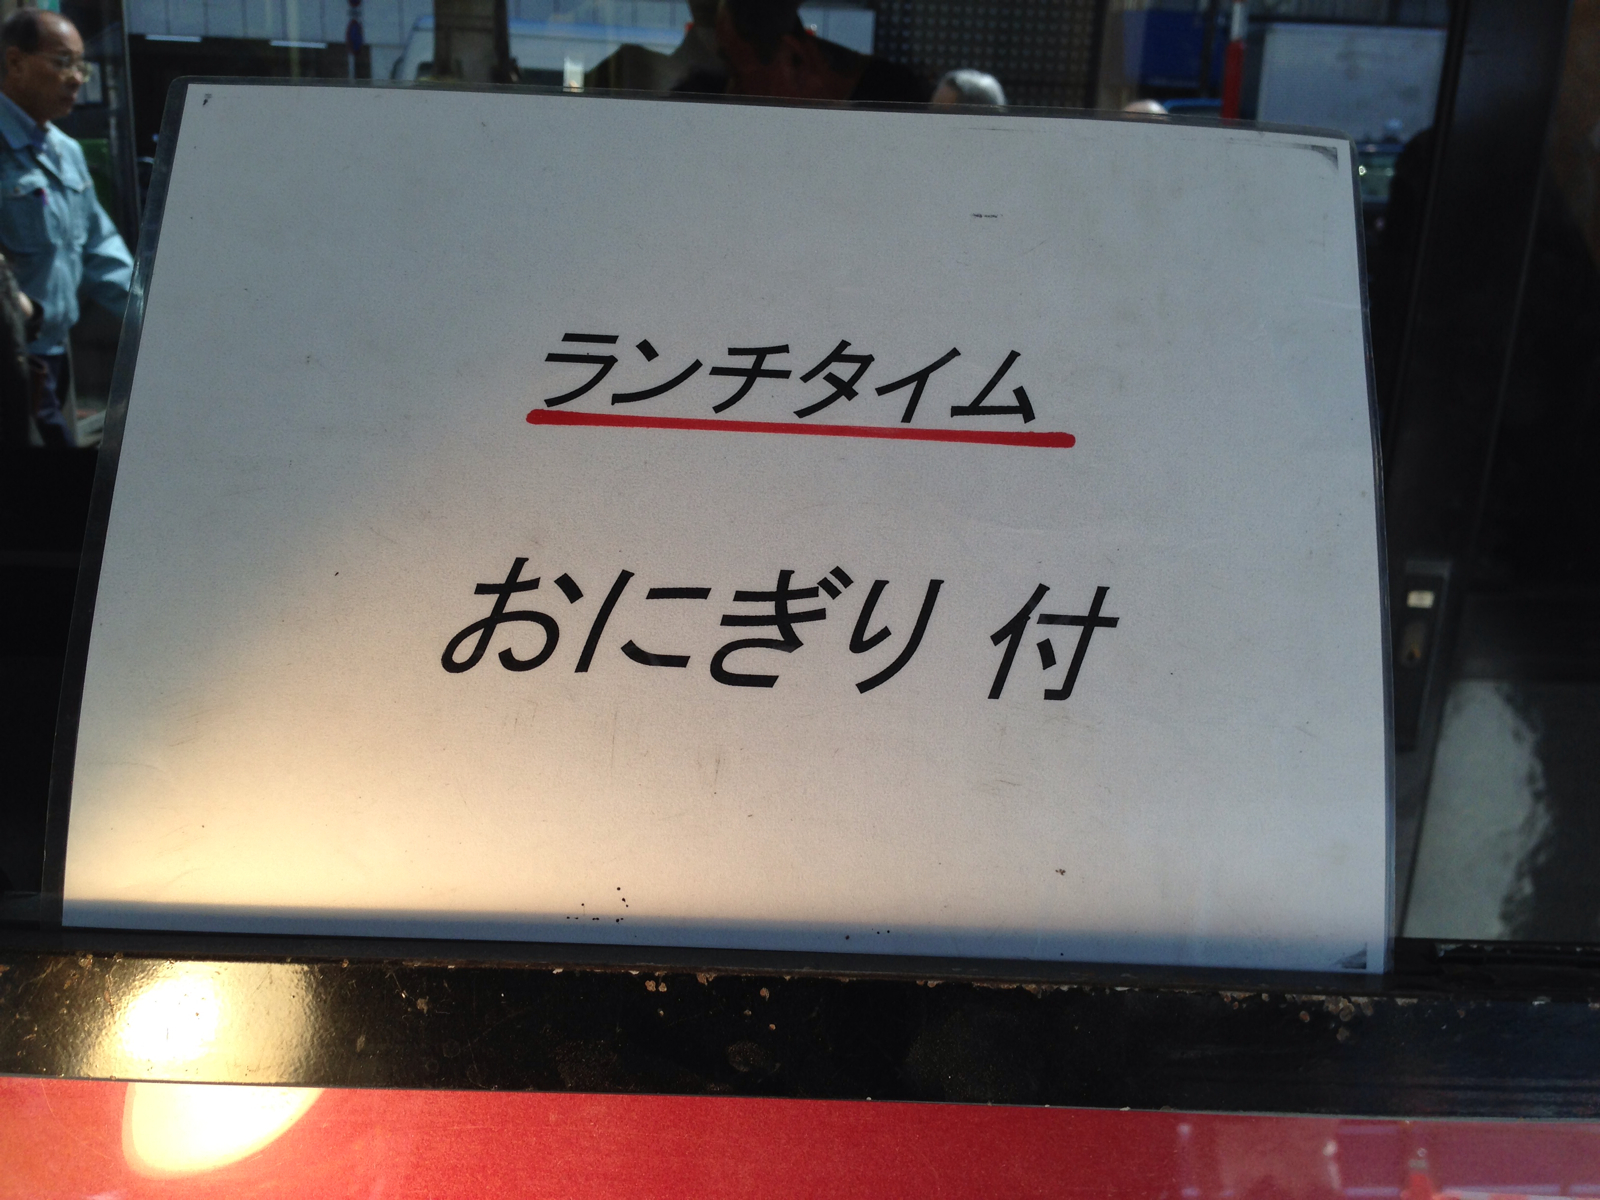 ランチタイム
おにぎり 付